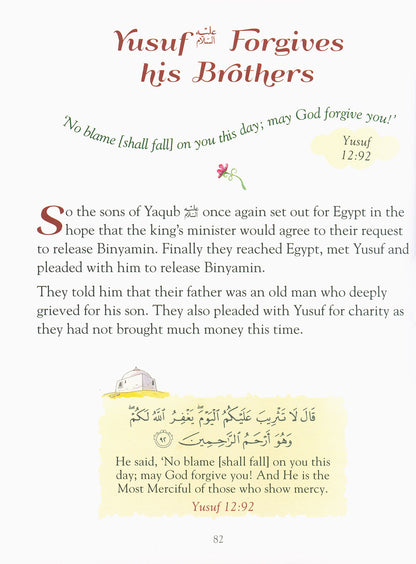 Yusuf عليه السلام Forgives
his Brothers
'No blame [shall fall] on you this day; may God forgive you!'
Yusuf
12:92
So the sons of Yaqub عليه السلام once again set out for Egypt in the
hope that the king's minister would agree to their request
to release Binyamin. Finally they reached Egypt, met Yusuf and
pleaded with him to release Binyamin.
They told him that their father was an old man who deeply
grieved for his son. They also pleaded with Yusuf for charity as
they had not brought much money this time.
قَالَ لَا تَثْرِيبَ عَلَيْكُمُ ٱلْيَوْمَ ۖ يَغْفِرُ ٱللَّهُ لَكُمْ ۖ
وَهُوَ أَرْحَمُ ٱلرَّٰحِمِينَ ۝٩٢
He said, 'No blame [shall fall] on you this
day; may God forgive you! And He is the
Most Merciful of those who show mercy.
Yusuf 12:92
82